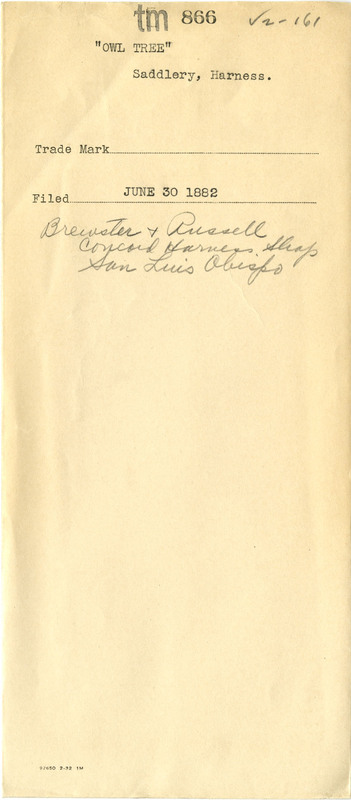 tm 866 V2-161
"OWL TREE"
Saddlery, Harness.
Trade Mark
Filed JUNE 30 1882
Brewster & Russell
Concord Harness Shop
San Luis Obispo
92650 2-32 1M